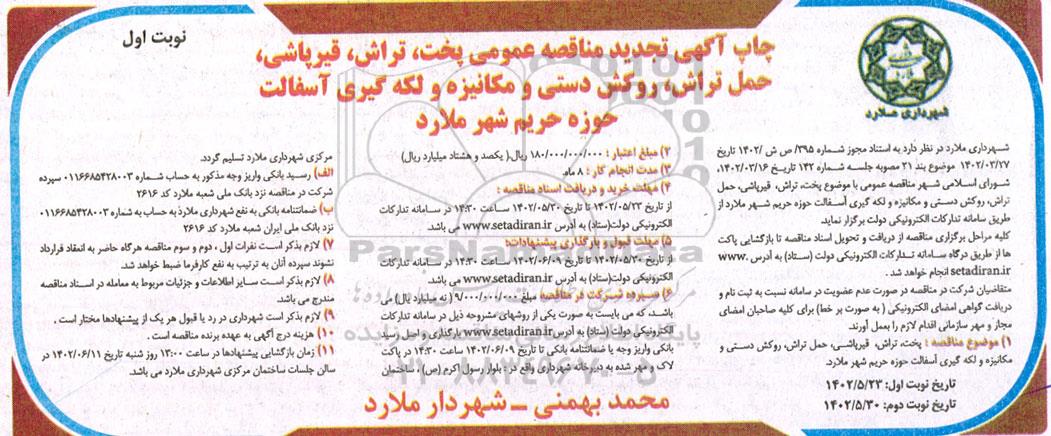 نوبت اول
چاپ آگهی تجدید مناقصه عمومی پخت، تراش، قیرپاشی،
حمل تراش، روکش دستی و مکانیزه و لکه گیری آسفالت
حوزه حریم شهر ملارد
شهرداری ملارد
شهرداری ملارد در نظر دارد به استناد مجوز شماره ۳۹۵/ ص ش /۱۴۰۲ تاریخ
۱۴۰۲/۰۳/۲۷ موضوع بند ۲۱ مصوبه جلسه شماره ۱۴۲ تاریخ ۱۴۰۲/۰۳/۱۶،
شورای اسلامی شهر مناقصه عمومی با موضوع پخت، تراش، قیرپاشی، حمل
تراش، روکش دستی و مکانیزه و لکه گیری آسفالت حوزه حریم شهر ملارد از
طریق سامانه تدارکات الکترونیکی دولت برگزار نماید.
کلیه مراحل برگزاری مناقصه از دریافت و تحویل اسناد مناقصه تا بازگشایی پاکت
ها از طریق درگاه سامانه تدارکات الکترونیکی دولت (ستاد) به آدرس www.
setadiran.ir انجام خواهد شد.
متقاضیان شرکت در مناقصه در صورت عدم عضویت در سامانه نسبت به ثبت نام و
دریافت گواهی امضای الکترونیکی ( به صورت بر خط) برای کلیه صاحبان امضای
مجاز و مهر سازمانی اقدام لازم را بعمل آورند.
۱) موضوع مناقصه : پخت، تراش، قیرپاشی، حمل تراش، روکش دستی و
مکانیزه و لکه گیری آسفالت حوزه حریم شهر ملارد.
تاریخ نوبت اول: ۱۴۰۲/۵/۲۳
تاریخ نوبت دوم: ۱۴۰۲/۵/۳۰
۲) مبلغ اعتبار : ۱۸۰/۰۰۰/۰۰۰/۰۰۰ ریال( یکصد و هشتاد میلیارد ریال)
۳) مدت انجام کار : ۸ ماه.
۴) مهلت خرید و دریافت اسناد مناقصه :
از تاریخ ۱۴۰۲/۰۵/۲۳ تا تاریخ ۱۴۰۲/۰۵/۳۰ ساعت ۱۴:۳۰ در سامانه تدارکات
الکترونیکی دولت(ستاد) به آدرس www.setadiran.ir می باشد.
۵) مهلت قبول و بارگذاری پیشنهادات:
از تاریخ ۱۴۰۲/۰۵/۳۰ تا تاریخ ۱۴۰۲/۰۶/۰۹ ساعت ۱۴:۳۰ در سامانه تدارکات
الکترونیکی دولت(ستاد) به آدرس www.setadiran.ir می باشد.
۶) سپرده شرکت در مناقصه مبلغ ۹/۰۰۰/۰۰۰/۰۰۰ ( نه میلیارد ریال) می
باشد، که می بایست به صورت یکی از روشهای مشروحه ذیل در سامانه تدارکات
الکترونیکی دولت (ستاد) به آدرس www.setadiran.ir بارگذاری و اصل رسید
بانکی واریز وجه یا ضمانتنامه بانکی تا تاریخ ۱۴۰۲/۰۶/۰۹ ساعت ۱۴:۳۰ در پاکت
لاک و مهر شده به دبیرخانه شهرداری واقع در : بلوار رسول اکرم (ص) ، ساختمان
مرکزی شهرداری ملارد تسلیم گردد.
الف) رسید بانکی واریز وجه مذکور به حساب شماره ۰۱۱۶۶۸۵۴۲۸۰۰۳ سپرده
شرکت در مناقصه نزد بانک ملی شعبه ملارد کد ۲۶۱۶
ب) ضمانتنامه بانکی به نفع شهرداری ملارد به حساب به شماره ۰۱۱۶۶۸۵۴۲۸۰۰۳
نزد بانک ملی ایران شعبه ملارد کد ۲۶۱۶
۷) لازم بذکر است نفرات اول ، دوم و سوم مناقصه هرگاه حاضر به انعقاد قرارداد
نشوند سپرده آنان به ترتیب به نفع کارفرما ضبط خواهد شد.
۸) لازم بذکر است سایر اطلاعات و جزئیات مربوط به معامله در اسناد مناقصه
مندرج می باشد.
۹) لازم بذکر است شهرداری در رد یا قبول هر یک از پیشنهادها مختار است .
۱۰) هزینه درج آگهی به عهده برنده مناقصه است .
۱۱) زمان بازگشایی پیشنهادها در ساعت ۱۳:۰۰ روز شنبه تاریخ ۱۴۰۲/۰۶/۱۱ در
سالن جلسات ساختمان مرکزی شهرداری ملارد می باشد.
محمد بهمنی ـ شهردار ملارد